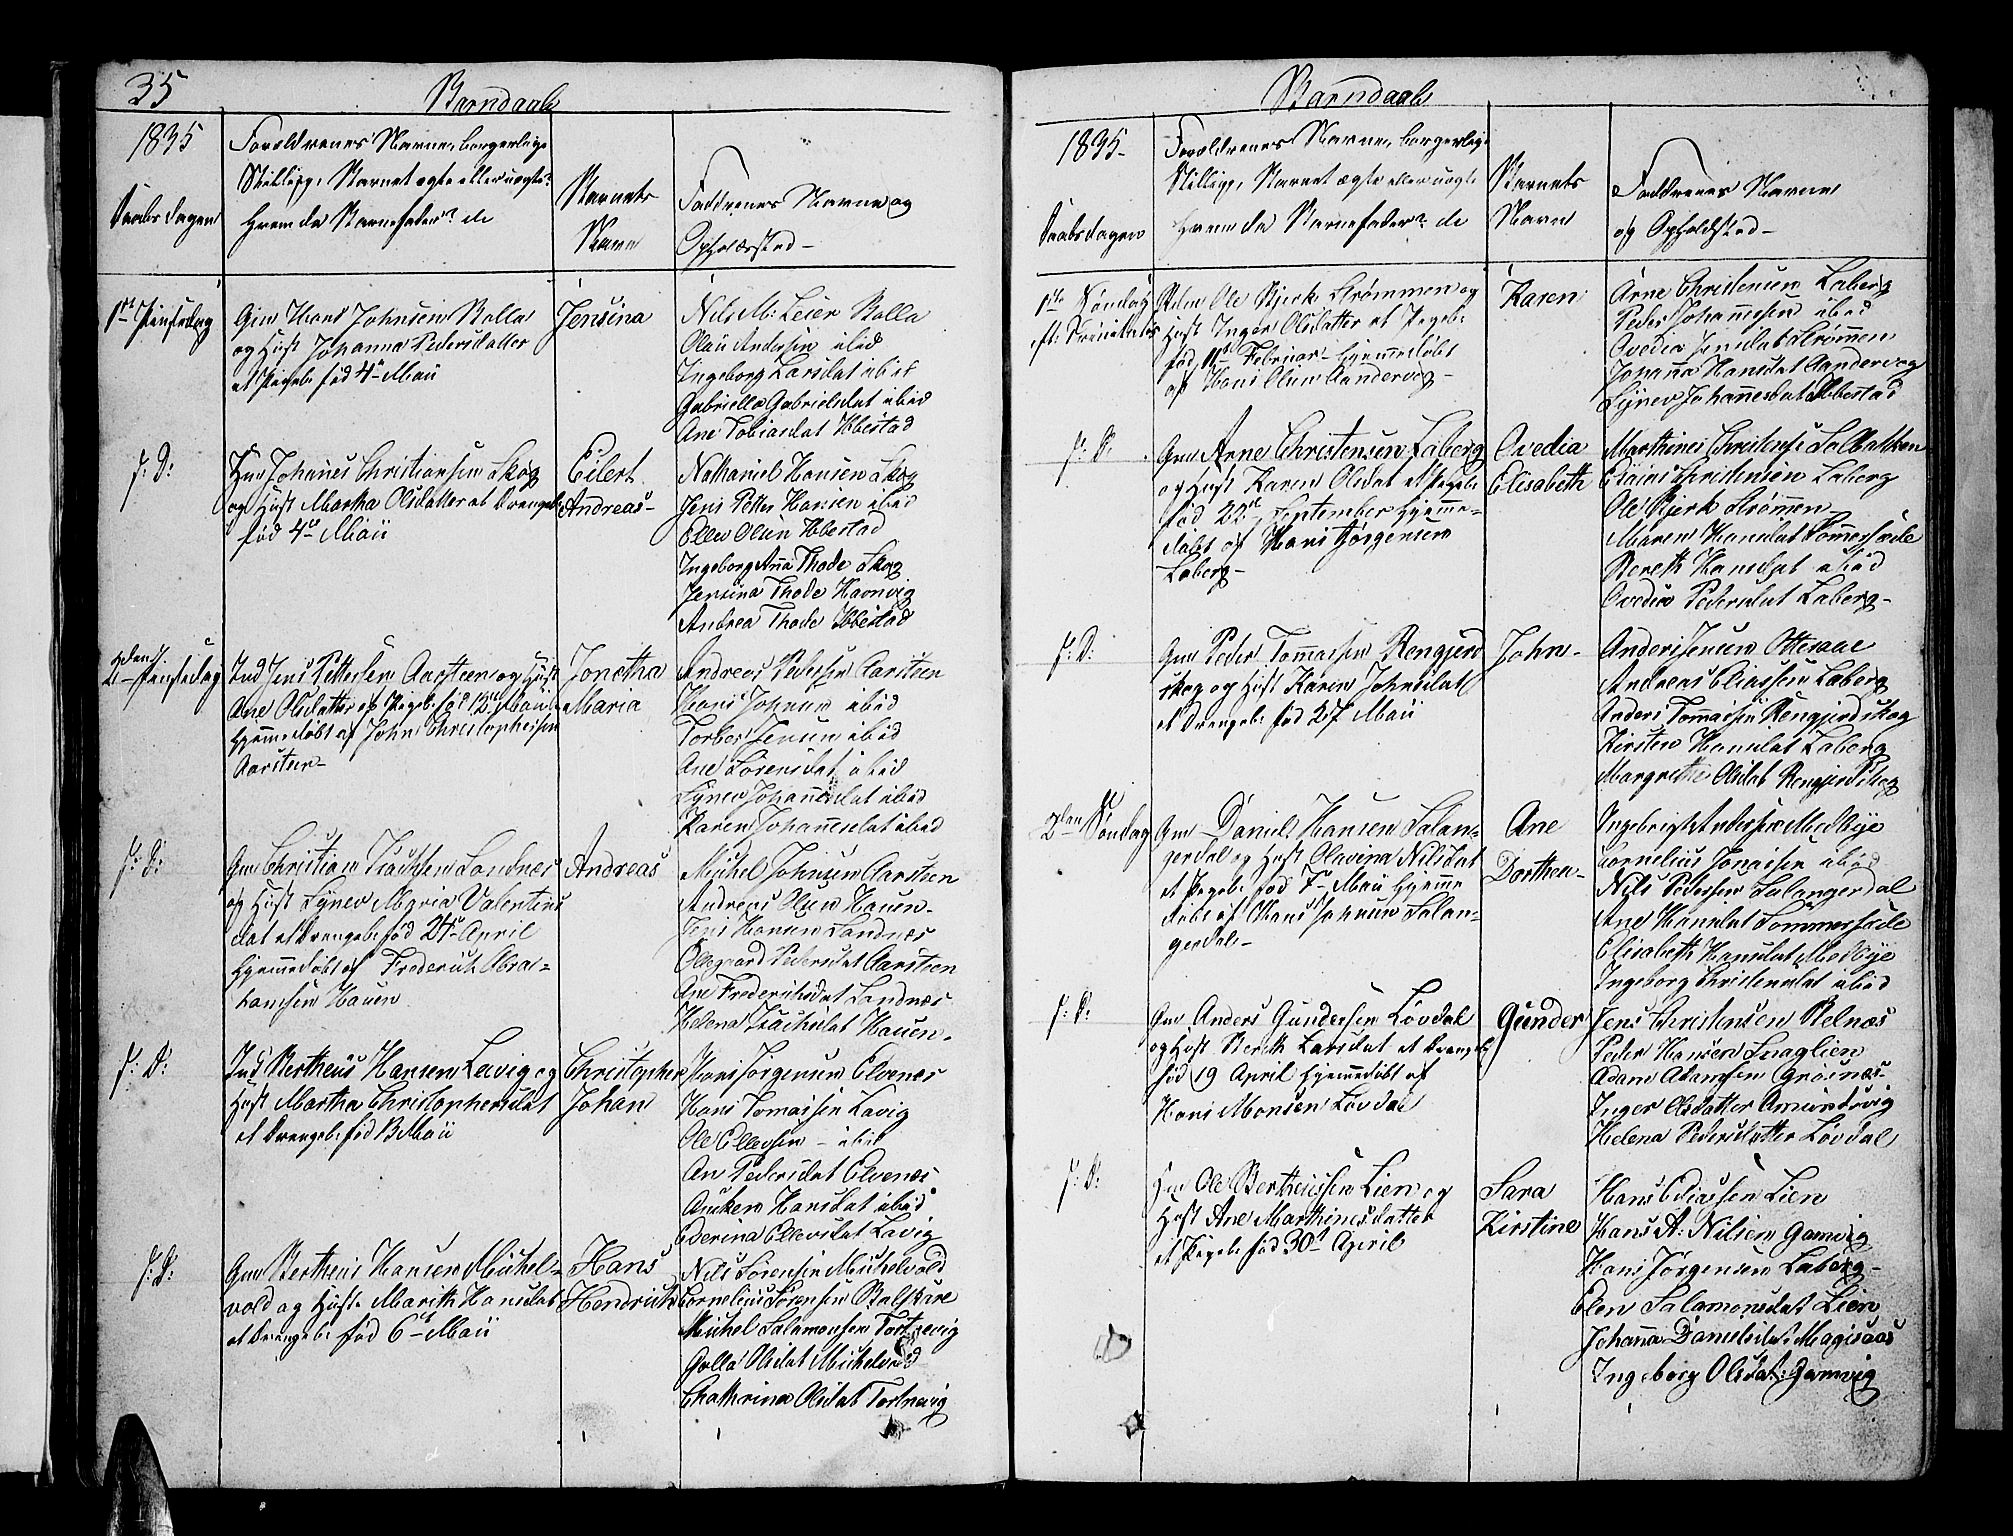 35
Barndaab
1835
Forældrenes Navne, borgerlige
Stilling, Barnet ægte eller uægte?
Hvem da Barnefader? de
Daabsdagen
Barnets
Navn
Faddrenes Navne og
Opholdssted –
1ste Pintsedag
Gm Hans Johnsen Rolla
og Hust Johanna Pedersdatter
et Pigeb: fød 4de Maii
Jensina
Nils M: Leier Rolla
Olau Andersen ibid
Ingeborg Larsdat ibid
Gabriella Gabrielsdat ibid
Ane Tobiasdat Ibbestad
s: D:
Hm Johannes Christiansen Skog
og Hust Martha Olsdatter et Drengeb:
fød 4de Maii
Eilert
Andreas –
Nathaniel Hansen Skog
Jens Petter Hansen ibid
Ellen Olsen Ibbestad
Ingeborg Anna Thode Skog
Jensina Thode Havnvig
Andrea Thode Ibbestad
2den Pintsedag
Ind Jens Pettersen Aarsteen og Hust
Ane Olsdatter et Pigeb: fød 12te Maii
Hjemmedøbt af John Christophersen
Aarsteen –
Jonetha
Maria
Andreas Pedersen Aarsteen
Hans Johnsen ibid
Torber Jensen ibid
Ane Sørensdat ibid
Synev Johannesdat ibid
Karen Johannesdat ibid
s: D:
Gm Christian Isachsen Sandnes
og Hust Synev Maria Valentins
dat et Drengeb: fød 24de April
Hjemmedøbt af Frederich Abra=
hamsen Hauen
Andreas
Michel Johnsen Aarsteen
Andreas Olsen Hauen –
Jens Hansen Sandnes
Ollegaard Pedersdat Aarsteen
Ane Frederichsdat Sandnes
Helena Isachsdat Hauen –
s: D:
Ind Bertheus Hansen Lavig og
Hust Martha Christophersdat
et Drengeb: fød 13 Maii
Christopher
Johan
Hans Jørgensen Elvenes
Hans Tomassen Lavig
Ole Ellevsen – ibid
An Pedersdat Elvenes
Anken Hansdat ibid
Ederina Ellevsdat Lavig
s: D:
Gm Bertheus Hansen Michel=
vold og Hust Marith Hansdat
et Drengeb: fød 6te Maii
Hans
Hendrich
Nils Sørensen Michelvold
Cornelius Sørensen Kalskare
Michel Salamonsen Tortnevig
Golla Olsdat Michelvold
Chatharina Olsdat Tortnevig
Barndaab
1835 –
Forældrenes Navne, borgerlige
Stilling, Barnet ægte eller uægte
Hvem da Barnefader? de
Daabsdagen
Barnets
Navn
Faddrenes Navne
og Opholdsted –
1ste Søndag
eft: Trinitatis
Gm Ole Bjerk Strømmen og
Hust Inger Olsdatter et Pigeb:
fød 11te Februar – Hjemmedøbt
af Hans Olsen Aandervog –
Karen
Arne Christensen Laberg
Peder Johannesen ibid
Ovedia Jensdat Strømmen
Johanna Hansdat Aandervog
Synev Johannesdat Ibbestad
s: D:
Gm Arne Christensen Laberg
og Hust Karen Olsdat et Pigeb:
fød 22de September Hjemme=
døbt af Hans Jørgensen
Laberg –
Ovedia
Elisabeth
Marthines Christensen Solbakken
Esaias Christensen Laberg
Ole Bjerk Strømmen
Maren Hansdat Sommersæde
Bereth Hansdat ibid
Ovedia Pedersdat Laberg –
s: D:
Gm Peder Tommassen Rengjerd
skog og Hust Karen Johnsdat
et Drengeb: fød 27 Maii
John –
Anders Jensen Otteraae
Andreas Eliassen Laberg
Anders Tommassen Rengjerdskog
Kirsten Hansdat Laberg
Margrethe Olsdat Rengjerdskog
2den Søndag
Gm Daniel Hansen Salan=
gerdal og Hust Olavina Nilsdat
et Pigeb: fød 7de Maii Hjemme
døbt af Hans Johnsen Salan=
gerdal –
Ane
Dorthea –
Ingebrigt Andersen Medbye
Cornelius Jonassen ibid
Nils Pedersen Salangerdal
Ane Hansdat Sommersæde
Elisabeth Hansdat Medbye
Ingeborg Christensdat ibid
s: D:
Gm Anders Gundersen Løvdal
og Hust Berith Larsdat et Drengeb:
fød 19 April Hjemmedøbt af
Hans Monsen Løvdal
Gunder
Jens Christensen Relnæs
Peder Hansen Snaglien
Adam Adamsen Grosnæs
Inger Olsdatter Amundsvig
Helena Pedersdatter Løvdal
s: D:
Hm Ole Bertheussen Lien og
Hust Ane Marthinesdatter
et Pigeb: fød 30te April
Sara
Kirstine
Hans Eliassen Lien
Hans A: Nilsen Gamvig
Hans Jørgensen Laberg –
Elen Salamonsdat Lien
Johanna Danielsdat Magisaas
Ingeborg Olsdat: Gamvig